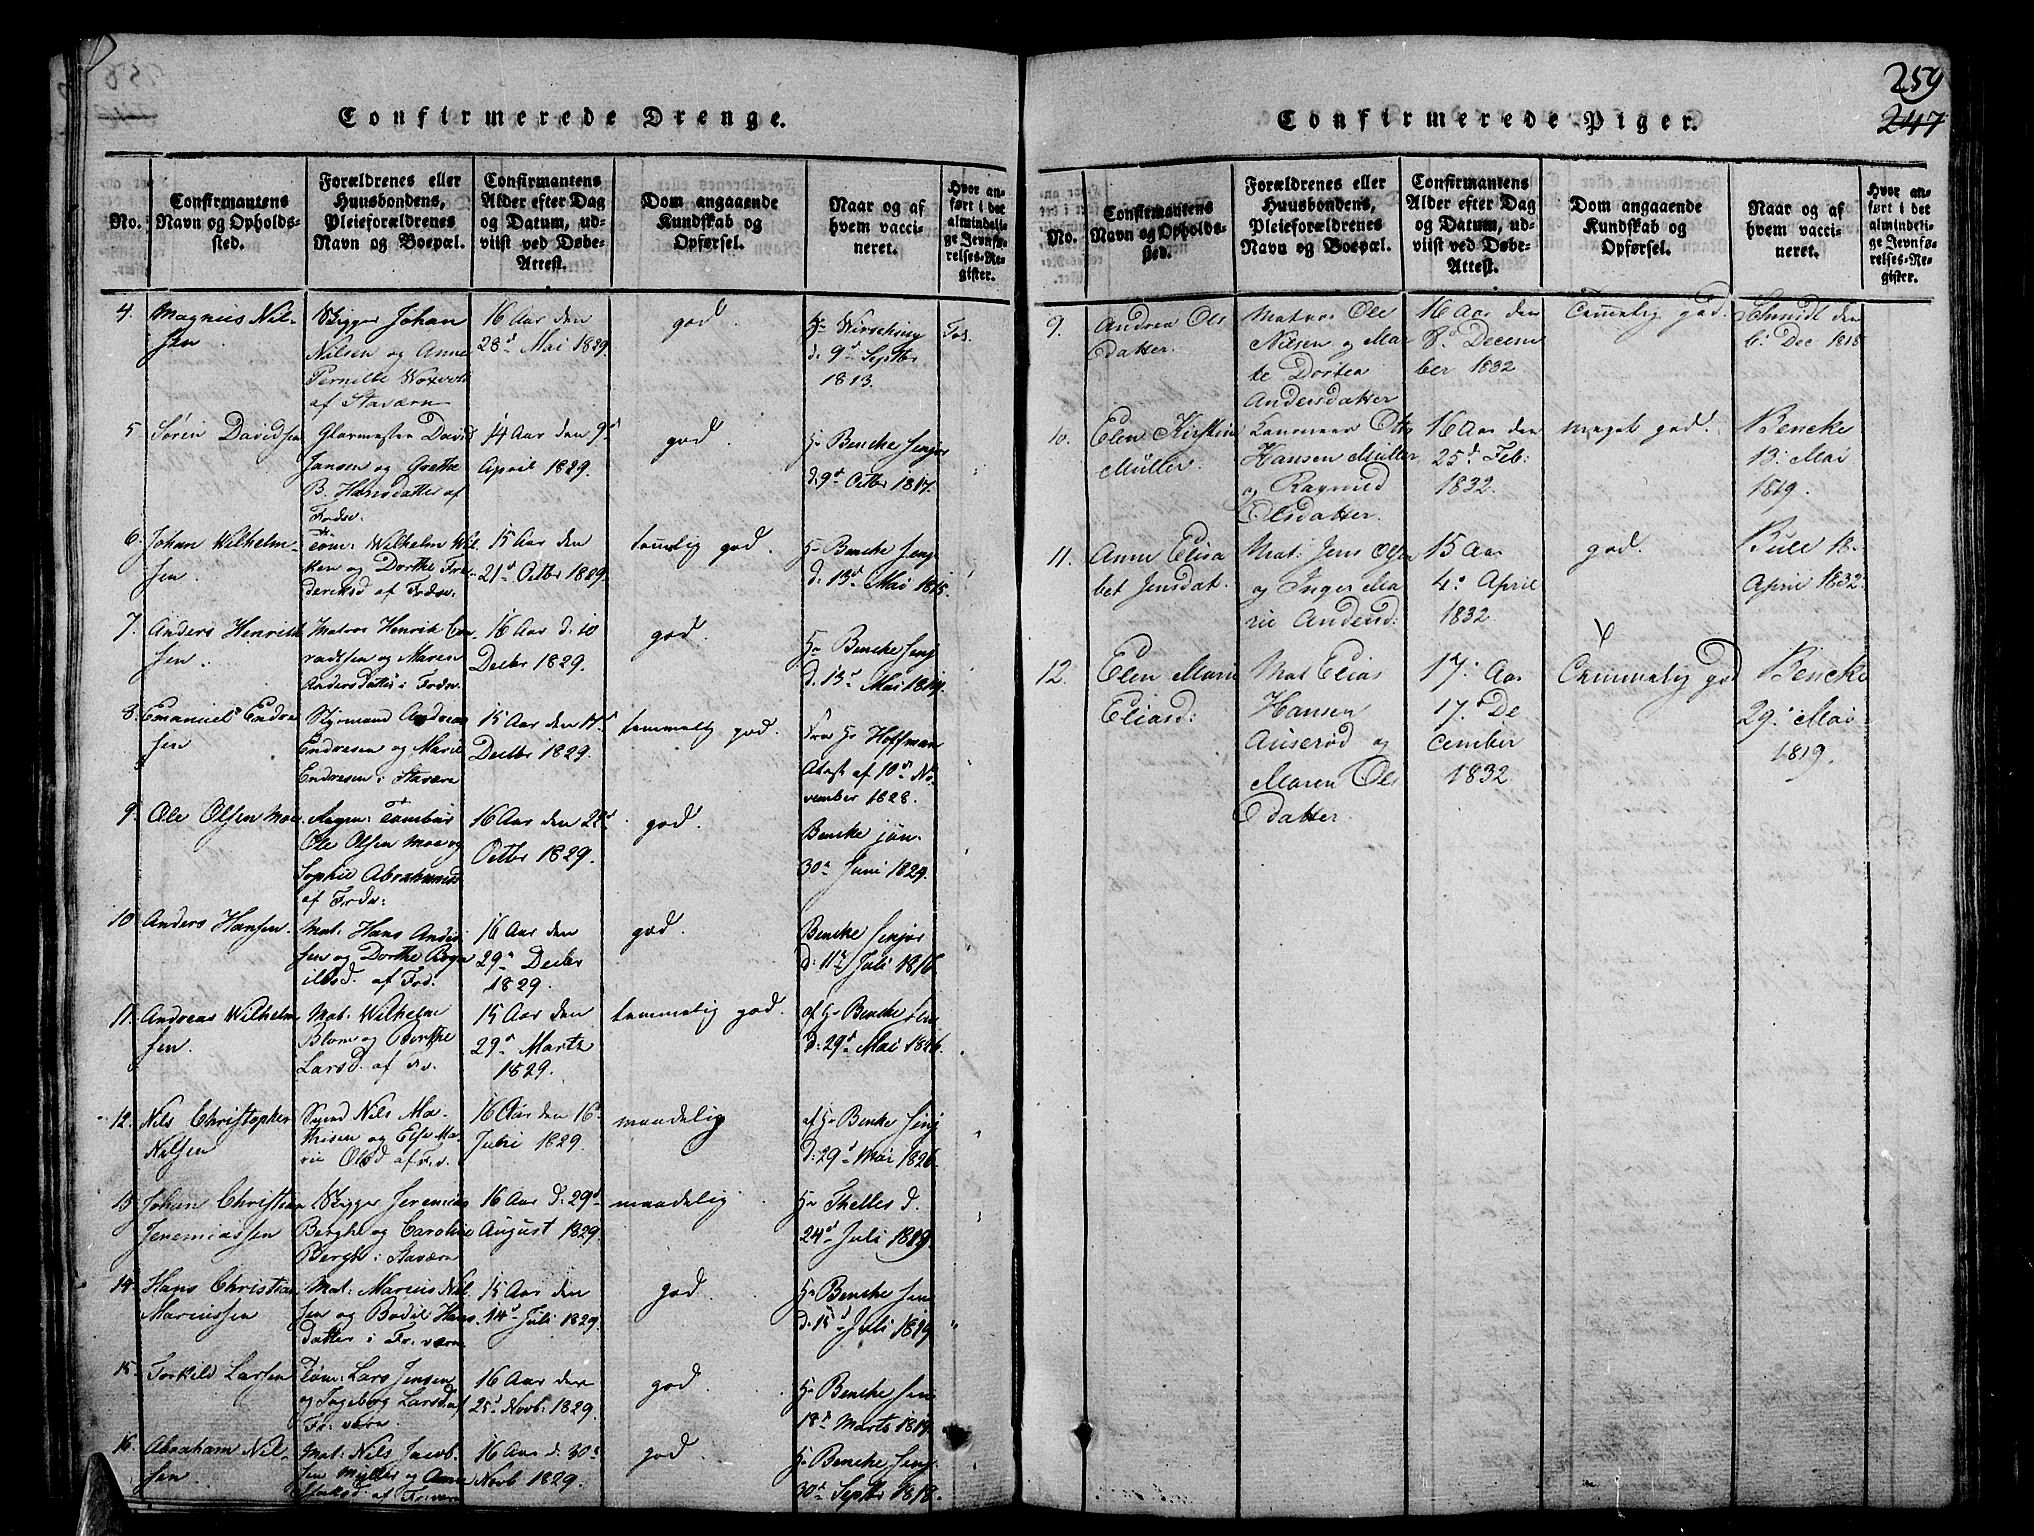 Confirmerede Drenge.
No.
Confirmantens
Navn og Opholds-
sted.
Forældrenes eller
Huusbondens,
Pleieforældrenes
Navn og Boepæl.
Confirmantens
Alder efter Dag
og Datum, ud-
viist ved Døbe-
Attest.
Dom angaaende
Kundskab og
Opførsel.
Naar og af
hvem vacci-
neret.
Hvor an-
ført i det
almindeli-
ge Jevnfø-
relses-Re-
gister.
4. Magnus Nil-
sen.
Bigger Johan
Nilsen og Anne
Pernille
af Staværn
16 Aar den
28d Mai 1829.
god.
d. 9d Septbr
1813.
5 Sören Davidsen
Glarmester David
Jansen og Grethe
B. Hansdatter af
Frdsv.
14 Aar den 9d
April 1829.
god.
Hr Bencke Senjor
d. 9d Octbr 1817.
6. Johan Wilhelm-
sen.
Töm: Wilhelm Wil-
ken og Dorthe Fre-
deriksd af Frdsv.
15 Aar den
21d Octbr 1829.
temlig god.
Hr Bencke Senj
d. 13d Mai 1815.
7. Anders Henrik-
sen.
Matros Henrik Con-
radsen og Maren
Andersdatter i Frdsv.
16 Aar d. 10
Decbr 1829.
god.
Hr Bencke Senj
d. 13d Mai 1814.
8. Emanuel Endre-
sen
Styrmand Andreas
Endresen og Marie
Endresen i Staværn
15 Aar den 17d
Decbr 1829.
temmelig god.
Fra Hr Hoffman
Attest af 10d No-
vember 1828.
9. Ole Olsen Moe.
Tambur
Ole Olsen Moe og
Sophie Abrahamsd
af Frdv:
16 Aar den 22d
Octbr 1829.
god.
Bencke jün.
30d Juni 1829.
10. Anders Hansen.
Mat: Hans Ander-
sen og Dorthe Rogn-
ildsd. af Frd.
16 Aar den
29d Decbr
1829.
god.
Bencke Senjor
d: 11d Juli 1816.
11. Andreas Wilhelm-
sen.
Mat: Wilhelm
Blom og Berthe
Larsd. af Frv.
15 Aar den
29d Marts
1829.
temmelig god.
af Hr Bencke Sen
d: 29d Mai 1826.
12. Nils Christopher
Nilsen
Nils Ma-
thisen og Else Ma-
rie Olsd af Frv.
16 Aar den 16d
Julii 1829.
maadelig
af Hr Bencke Senj
d: 29d Mai 1826.
13. Johan Christian
Jeremiassen
Bigger Jeremias
Berghe og Caroline
Berghe i Staværn
16 Aar d. 29d
August 1829.
maadelig
Hr Theller d.
24d Juli 1819.
14. Hans Christian
Mariussen
Mat: Marius Nil-
sen og Bodil Hans-
datter i Fr:værn
15 Aar den
14d Juli 1829.
god.
Hr Bencke Sen
d. 15d Juli 1819
15. Torkild Larsen
Töm: Lars Jensen
og Ingeborg Larsd af
Fr:værn.
16 Aar den
25d Novb: 1829.
god.
Hr Bencke Sen
18d Marts 1819.
16. Abraham Nil-
sen.
Mat: Nils Jacob-
sen Myller og Anne
af Fr:værn
16 Aar d: 30d
Novb 1829.
god
Hr Bencke Senj.
30d Septbr 1818.
259
247
Confirmerede Piger.
No.
Confirmantens
Navn og Opholds-
sted.
Forældrenes eller
Huusbondens,
Pleieforældrenes
Navn og Boepæl.
Confirmantens
Alder efter Dag
og Datum, ud-
viist ved Døbe-
Attest.
Dom angaaende
Kundskab og
Opførsel.
Naar og af
hvem vacci-
neret.
Hvor an-
ført i det
almindeli-
ge Jevnfø-
relses-Re-
gister.
9. Andrea Ols
Datter.
Matros Ole
Nilsen og Ma-
te Dortea
Andersdatter
16 Aar den
8d Decem
ber 1832
Temmelig god.
Schmidt den
6. Dec 1818
10. Elen Kirstin
Müller.
Otto
Hansen Müller
og Ragnild
Olsdatter.
16 Aar den
25d Feb:
1832.
meget god.
Bencke
13. Mai
1819.
11. Anne Elisa
bet Jensdat.
Mat: Jens Olsen
og Inger Ma
rie Andersd:
15 Aar
4. April
1832
god.
Bull 18
April 1832.
12. Elen Marie
Eliasd:
Mat Elias
Hansen
Auserød og
Maren Ols
Datter.
17. Aar
17. De
cember
1832
Temmelig god
Bencke
29. Mai
1819.